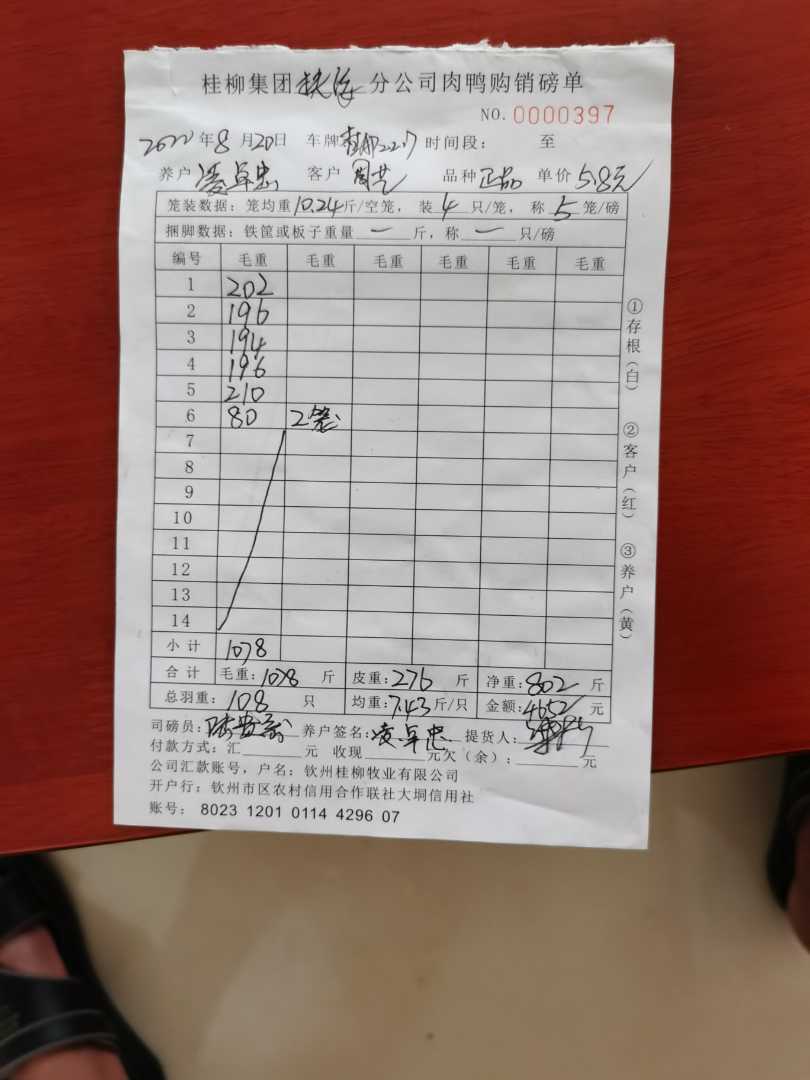 桂柳集团钦洋分公司肉鸭购销磅单
NO. 0000397
2022年8月20日 车牌 时间段: 至
养户 凌卓忠 客户 周艺 品种 正品 单价 5.8元
笼装数据: 笼均重10.24斤/空笼, 装4只/笼, 称5笼/磅
捆脚数据: 铁筐或板子重量一斤, 称一只/磅
编号 毛重 毛重 毛重 毛重 毛重 毛重
1 202
2 196
3 194
4 196
5 210
6 80 2笼
7
8
9
10
11
12
13
14
小计 1078
合计 毛重: 1078 斤 皮重: 276 斤 净重: 802 斤
总羽重: 108 只 均重: 7.43斤/只 金额: 4652元
司磅员: 养户签名: 凌卓忠 提货人:
付款方式: 汇 元 收现 元欠(余): 元
公司汇款账号, 户名: 钦州桂柳牧业有限公司
开户行: 钦州市区农村信用合作联社大垌信用社
账号: 8023 1201 0114 4296 07
①存根(白) ②客户(红) ③养户(黄)